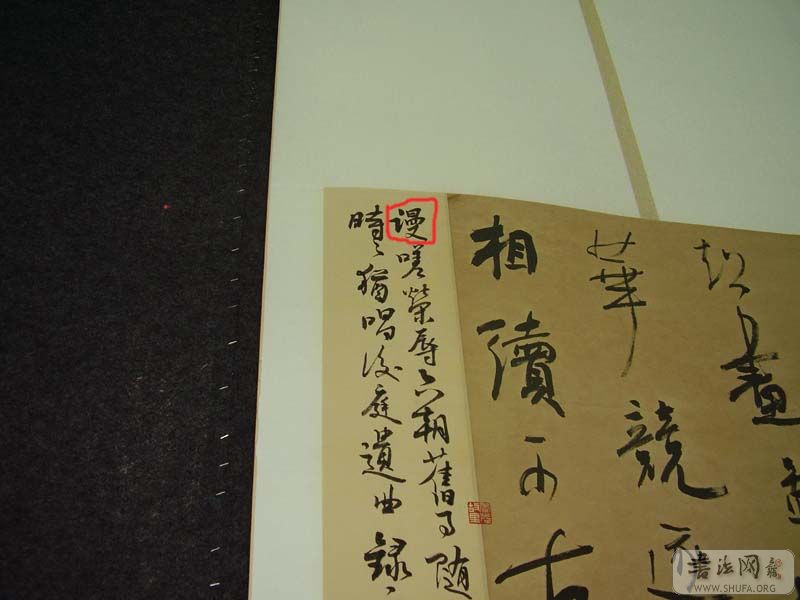 起畫
華競逐
相續千古
謾嗟榮辱六朝舊事隨
時々猶唱後庭遺曲錄
書法网
WWW.SHUFA.ORG